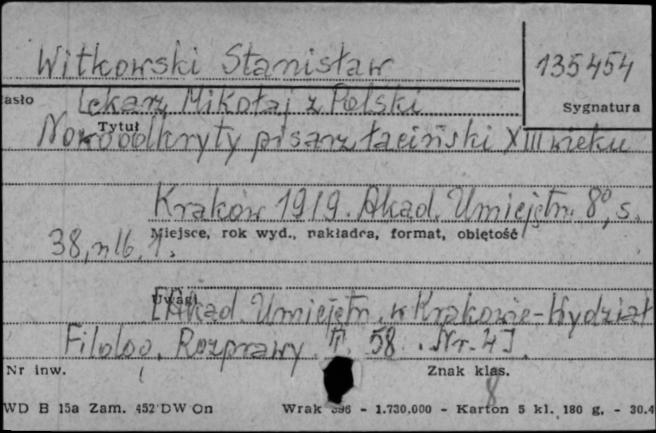 Witkowski Stanisław
135454
asło
Lekarz Mikołaj z Polski
Sygnatura
Tytuł
Nowoodkryty pisarz łaciński XIII wieku
Kraków 1919. Akad. Umiejętn. 8°, s.
Miejsce, rok wyd., nakładca, format, objętość
38, nlb. 1.
Uwagi
[Akad. Umiejętn. w Krakowie - Wydział
Filolog. Rozprawy T. 58. Nr. 4].
Nr inw.
Znak klas.
8
WD B 15a Zam. 452 DW On
Wrak 396 - 1.730.000 - Karton 5 kl. 180 g. - 30.4